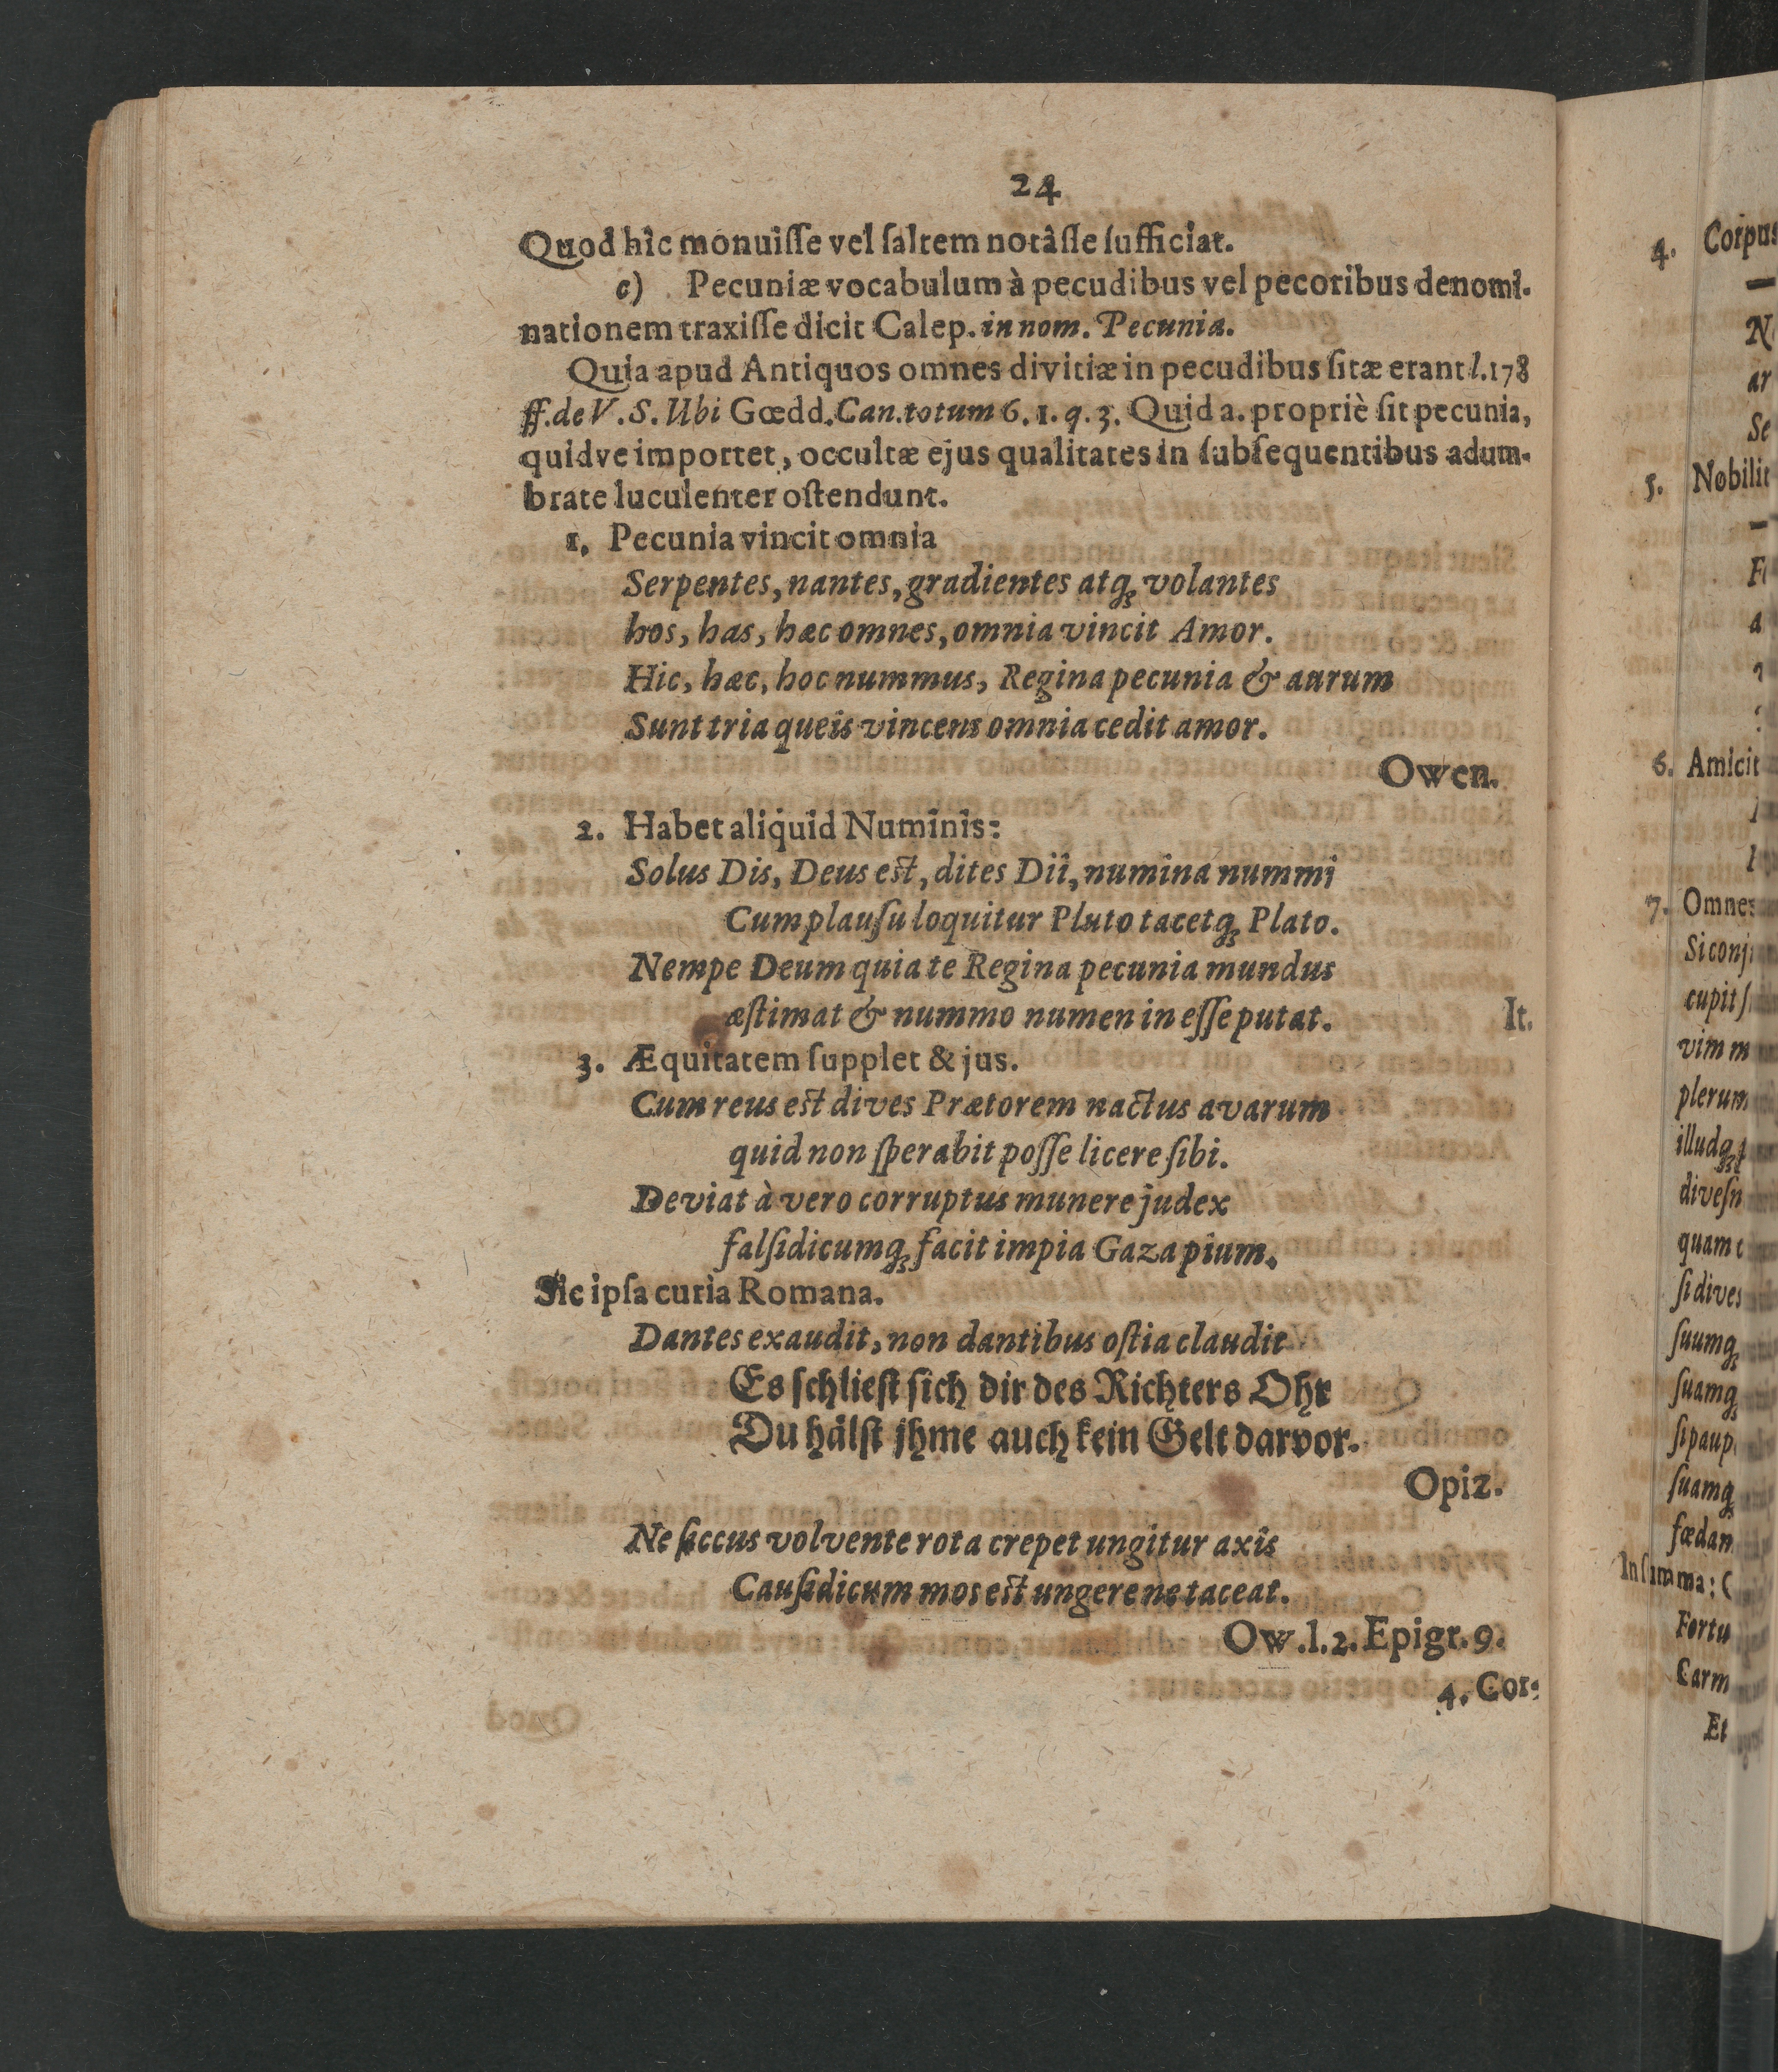 24
Quod hîc monuiſſe vel ſaltem notâſſe ſufficiat.
c) Pecuniæ vocabulum à pecudibus vel pecoribus denomi-
nationem traxiſſe dicit Calep. in nom. Pecunia.
Quia apud Antiquos omnes divitiæ in pecudibus ſitæ erant l. 178
ff. de V. S. Ubi Gœdd. Can. totum 6. 1. q. 3. Quid a. propriè ſit pecunia,
quidve importet, occultæ ejus qualitates in ſubſequentibus adum-
bratæ luculenter oſtendunt.
1. Pecunia vincit omnia
Serpentes, nantes, gradientes atq; volantes
hos, has, hæc omnes, omnia vincit Amor.
Hic, hæc, hoc nummus, Regina pecunia & aurum
Sunt tria queîs vincens omnia cedit amor.
Owen.
2. Habet aliquid Numinis:
Solus Dis, Deus eſt, dites Dii, numina nummi
Cum plauſu loquitur Pluto tacetq; Plato.
Nempe Deum quia te Regina pecunia mundus
æſtimat & nummo numen in eſſe putat. It.
3. Æquitatem ſupplet & jus.
Cum reus eſt dives Prætorem nactus avarum
quid non ſperabit poſſe licere ſibi.
Deviat à vero corruptus munere judex
falſidicumq; facit impia Gaza pium.
Sic ipſa curia Romana.
Dantes exaudit, non dantibus oſtia claudit
Es ſchlieſt ſich dir des Richters Ohr
Du hälſt jhme auch kein Gelt darvor.
Opiz.
Ne ſiccus volvente rota crepet ungitur axis
Cauſidicum mos eſt ungere ne taceat.
Ow. l. 2. Epigr. 9.
4. Cor-
4. Corpus
ar
Se
5. Nobilit
6. Amicit
7. Omnes
Si conj
cupit ſ
vim m
plerum
illudq;
dives n
quam
ſi dives
ſuumq;
ſuamq;
ſi paup
ſuamq;
fœdan
In ſumma:
Fortu
Carm
Et